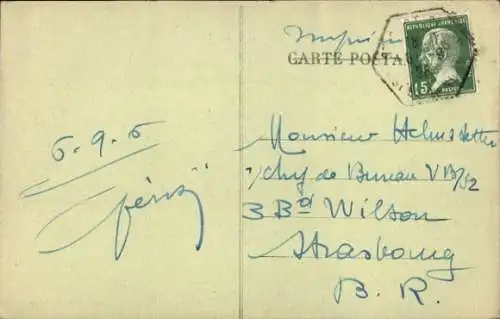 Imprimé
CARTE POSTA
REPUBLIQUE FRANÇAISE
15
6.9.6
Monsieur Helmstetter
Chef de Bureau VB/52
3 Bd Wilson
Strasbourg
B. R.